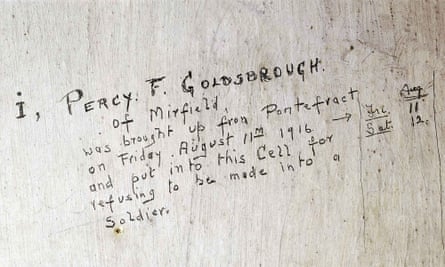 i, PERCY. F. GOLDSBROUGH.
of Mirfield,
was brought up from Pontefract
on Friday August 11th 1916 →
and put into this Cell for
refusing to be made into a
Soldier.
Aug
Fri. 11
Sat. 12.